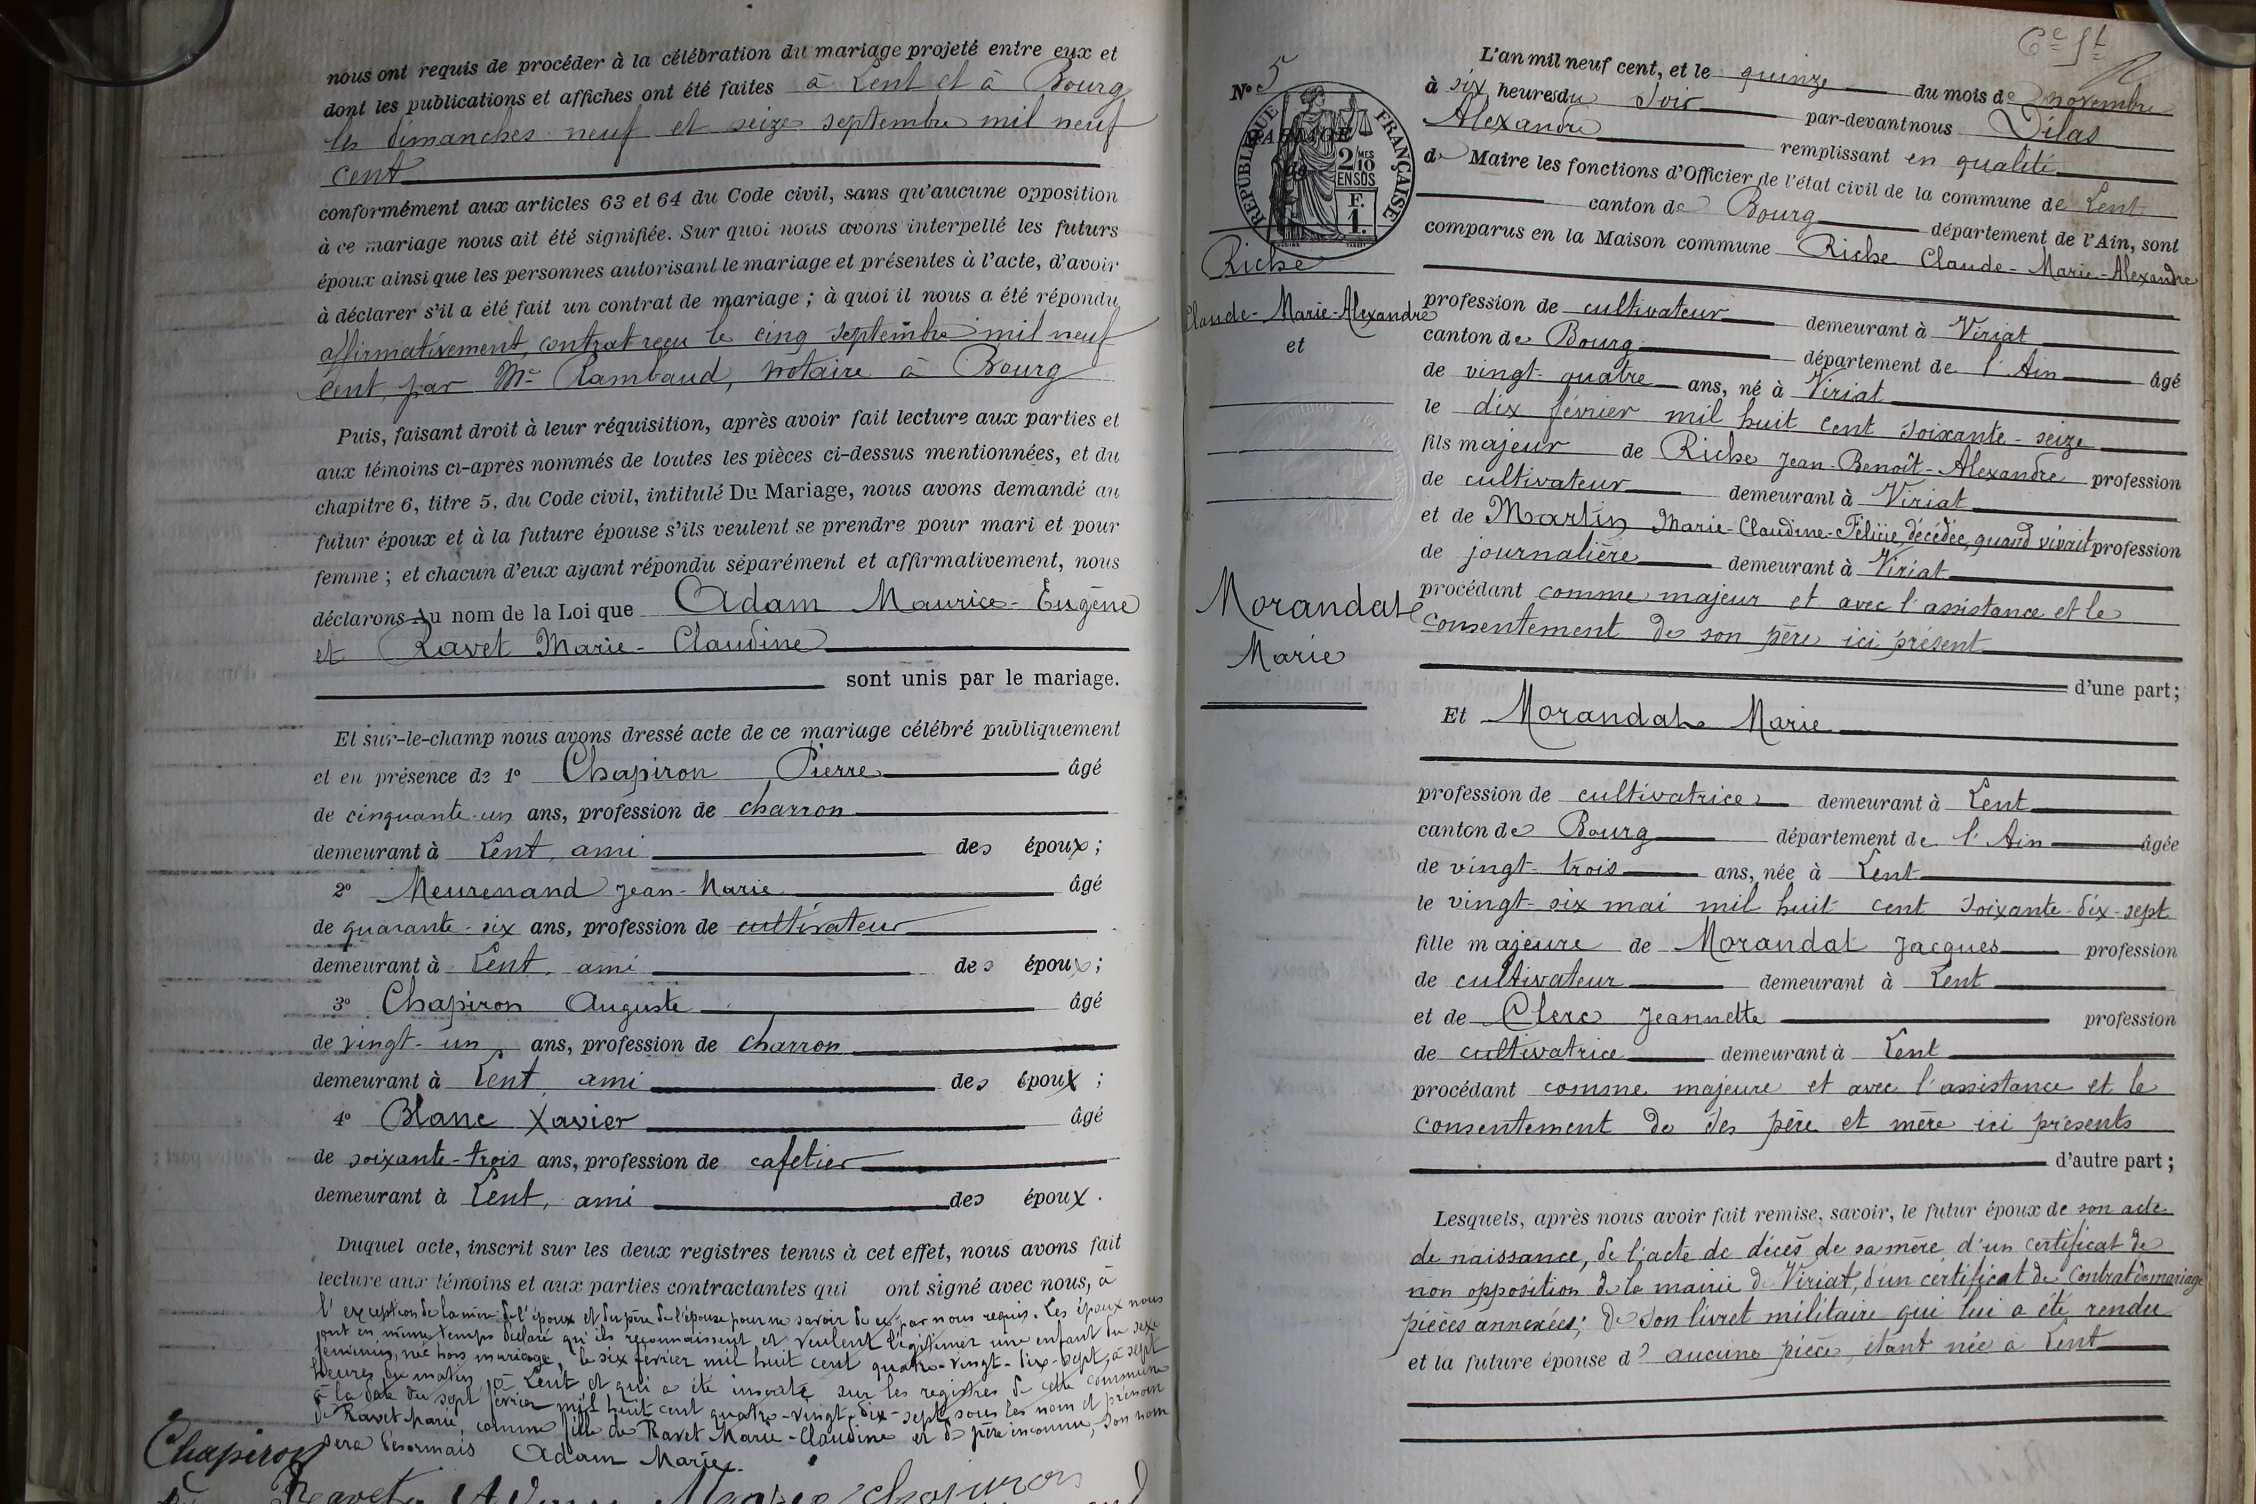 nous ont requis de procéder à la célébration du mariage projeté entre eux et
dont les publications et affiches ont été faites à Lent et à Bourg
les dimanches neuf et seize septembre mil neuf
cent
conformément aux articles 63 et 64 du Code civil, sans qu'aucune opposition
à ce mariage nous ait été signifiée. Sur quoi nous avons interpellé les futurs
époux ainsi que les personnes autorisant le mariage et présentes à l'acte, d'avoir
à déclarer s'il a été fait un contrat de mariage ; à quoi il nous a été répondu
affirmativement, contrat reçu le cinq septembre mil neuf
cent, par Me Rambaud, notaire à Bourg
Puis, faisant droit à leur réquisition, après avoir fait lecture aux parties et
aux témoins ci-après nommés de toutes les pièces ci-dessus mentionnées, et du
chapitre 6, titre 5, du Code civil, intitulé Du Mariage, nous avons demandé au
futur époux et à la future épouse s'ils veulent se prendre pour mari et pour
femme ; et chacun d'eux ayant répondu séparément et affirmativement, nous
déclarons Au nom de la Loi que Adam Maurice-Eugène
et Ravet Marie-Claudine
sont unis par le mariage.
Et sur-le-champ nous avons dressé acte de ce mariage célébré publiquement
et en présence de 1° Chapiron Pierre âgé
de cinquante-un ans, profession de charron
demeurant à Lent, ami des époux ;
2° Meurenand Jean-Marie âgé
de quarante-six ans, profession de cultivateur
demeurant à Lent, ami des époux ;
3° Chapiron Auguste âgé
de vingt-un ans, profession de charron
demeurant à Lent, ami des époux ;
4° Blanc Xavier âgé
de soixante-trois ans, profession de cafetier
demeurant à Lent, ami des époux.
Duquel acte, inscrit sur les deux registres tenus à cet effet, nous avons fait
lecture aux témoins et aux parties contractantes qui ont signé avec nous, à
l'exception de la mère de l'époux et du père de l'épouse pour ne savoir de ce par nous requis. Les époux nous
ont en même temps déclaré qu'ils reconnaissent et veulent légitimer une enfant du sexe
féminin, née hors mariage, le six février mil huit cent quatre-vingt-dix-sept, à sept
heures du matin, à Lent et qui a été inscrite sur les registres de cette commune
à la date du sept février mil huit cent quatre-vingt-dix-sept, sous les nom et prénom
de Ravet Marie, comme fille de Ravet Marie-Claudine et de père inconnu, son nom
sera désormais Adam Marie.
Chapiron
Ravet Adam Marie Chapiron
N° 5
MARIAGE
de
RÉPUBLIQUE FRANÇAISE
2/10 MES
EN SUS
F.
1.
Riche
Claude-Marie-Alexandre
et
Morandat
Marie
L'an mil neuf cent, et le quinze du mois de novembre
à six heures du soir par-devant nous Dilas
Alexandre remplissant en qualité
de Maire les fonctions d'Officier de l'état civil de la commune de Lent
canton de Bourg département de l'Ain, sont
comparus en la Maison commune Riche Claude-Marie-Alexandre
profession de cultivateur demeurant à Viriat
canton de Bourg département de l'Ain âgé
de vingt-quatre ans, né à Viriat
le dix février mil huit cent soixante-seize
fils majeur de Riche Jean-Benoît-Alexandre profession
de cultivateur demeurant à Viriat
et de Martin Marie-Claudine-Félicie, décédée, quand vivait profession
de journalière demeurant à Viriat
procédant comme majeur et avec l'assistance et le
consentement de son père ici présent
d'une part ;
Et Morandat Marie
profession de cultivatrice demeurant à Lent
canton de Bourg département de l'Ain âgée
de vingt-trois ans, née à Lent
le vingt-six mai mil huit cent soixante-dix-sept
fille majeure de Morandat Jacques profession
de cultivateur demeurant à Lent
et de Clerc Jeannette profession
de cultivatrice demeurant à Lent
procédant comme majeure et avec l'assistance et le
consentement de ses père et mère ici présents
d'autre part ;
Lesquels, après nous avoir fait remise, savoir, le futur époux de son acte
de naissance, de l'acte de décès de sa mère, d'un certificat de
non opposition de la mairie de Viriat, d'un certificat de contrat de mariage
pièces annexées ; de son livret militaire qui lui a été rendu
et la future épouse d? aucune pièce, étant née à Lent